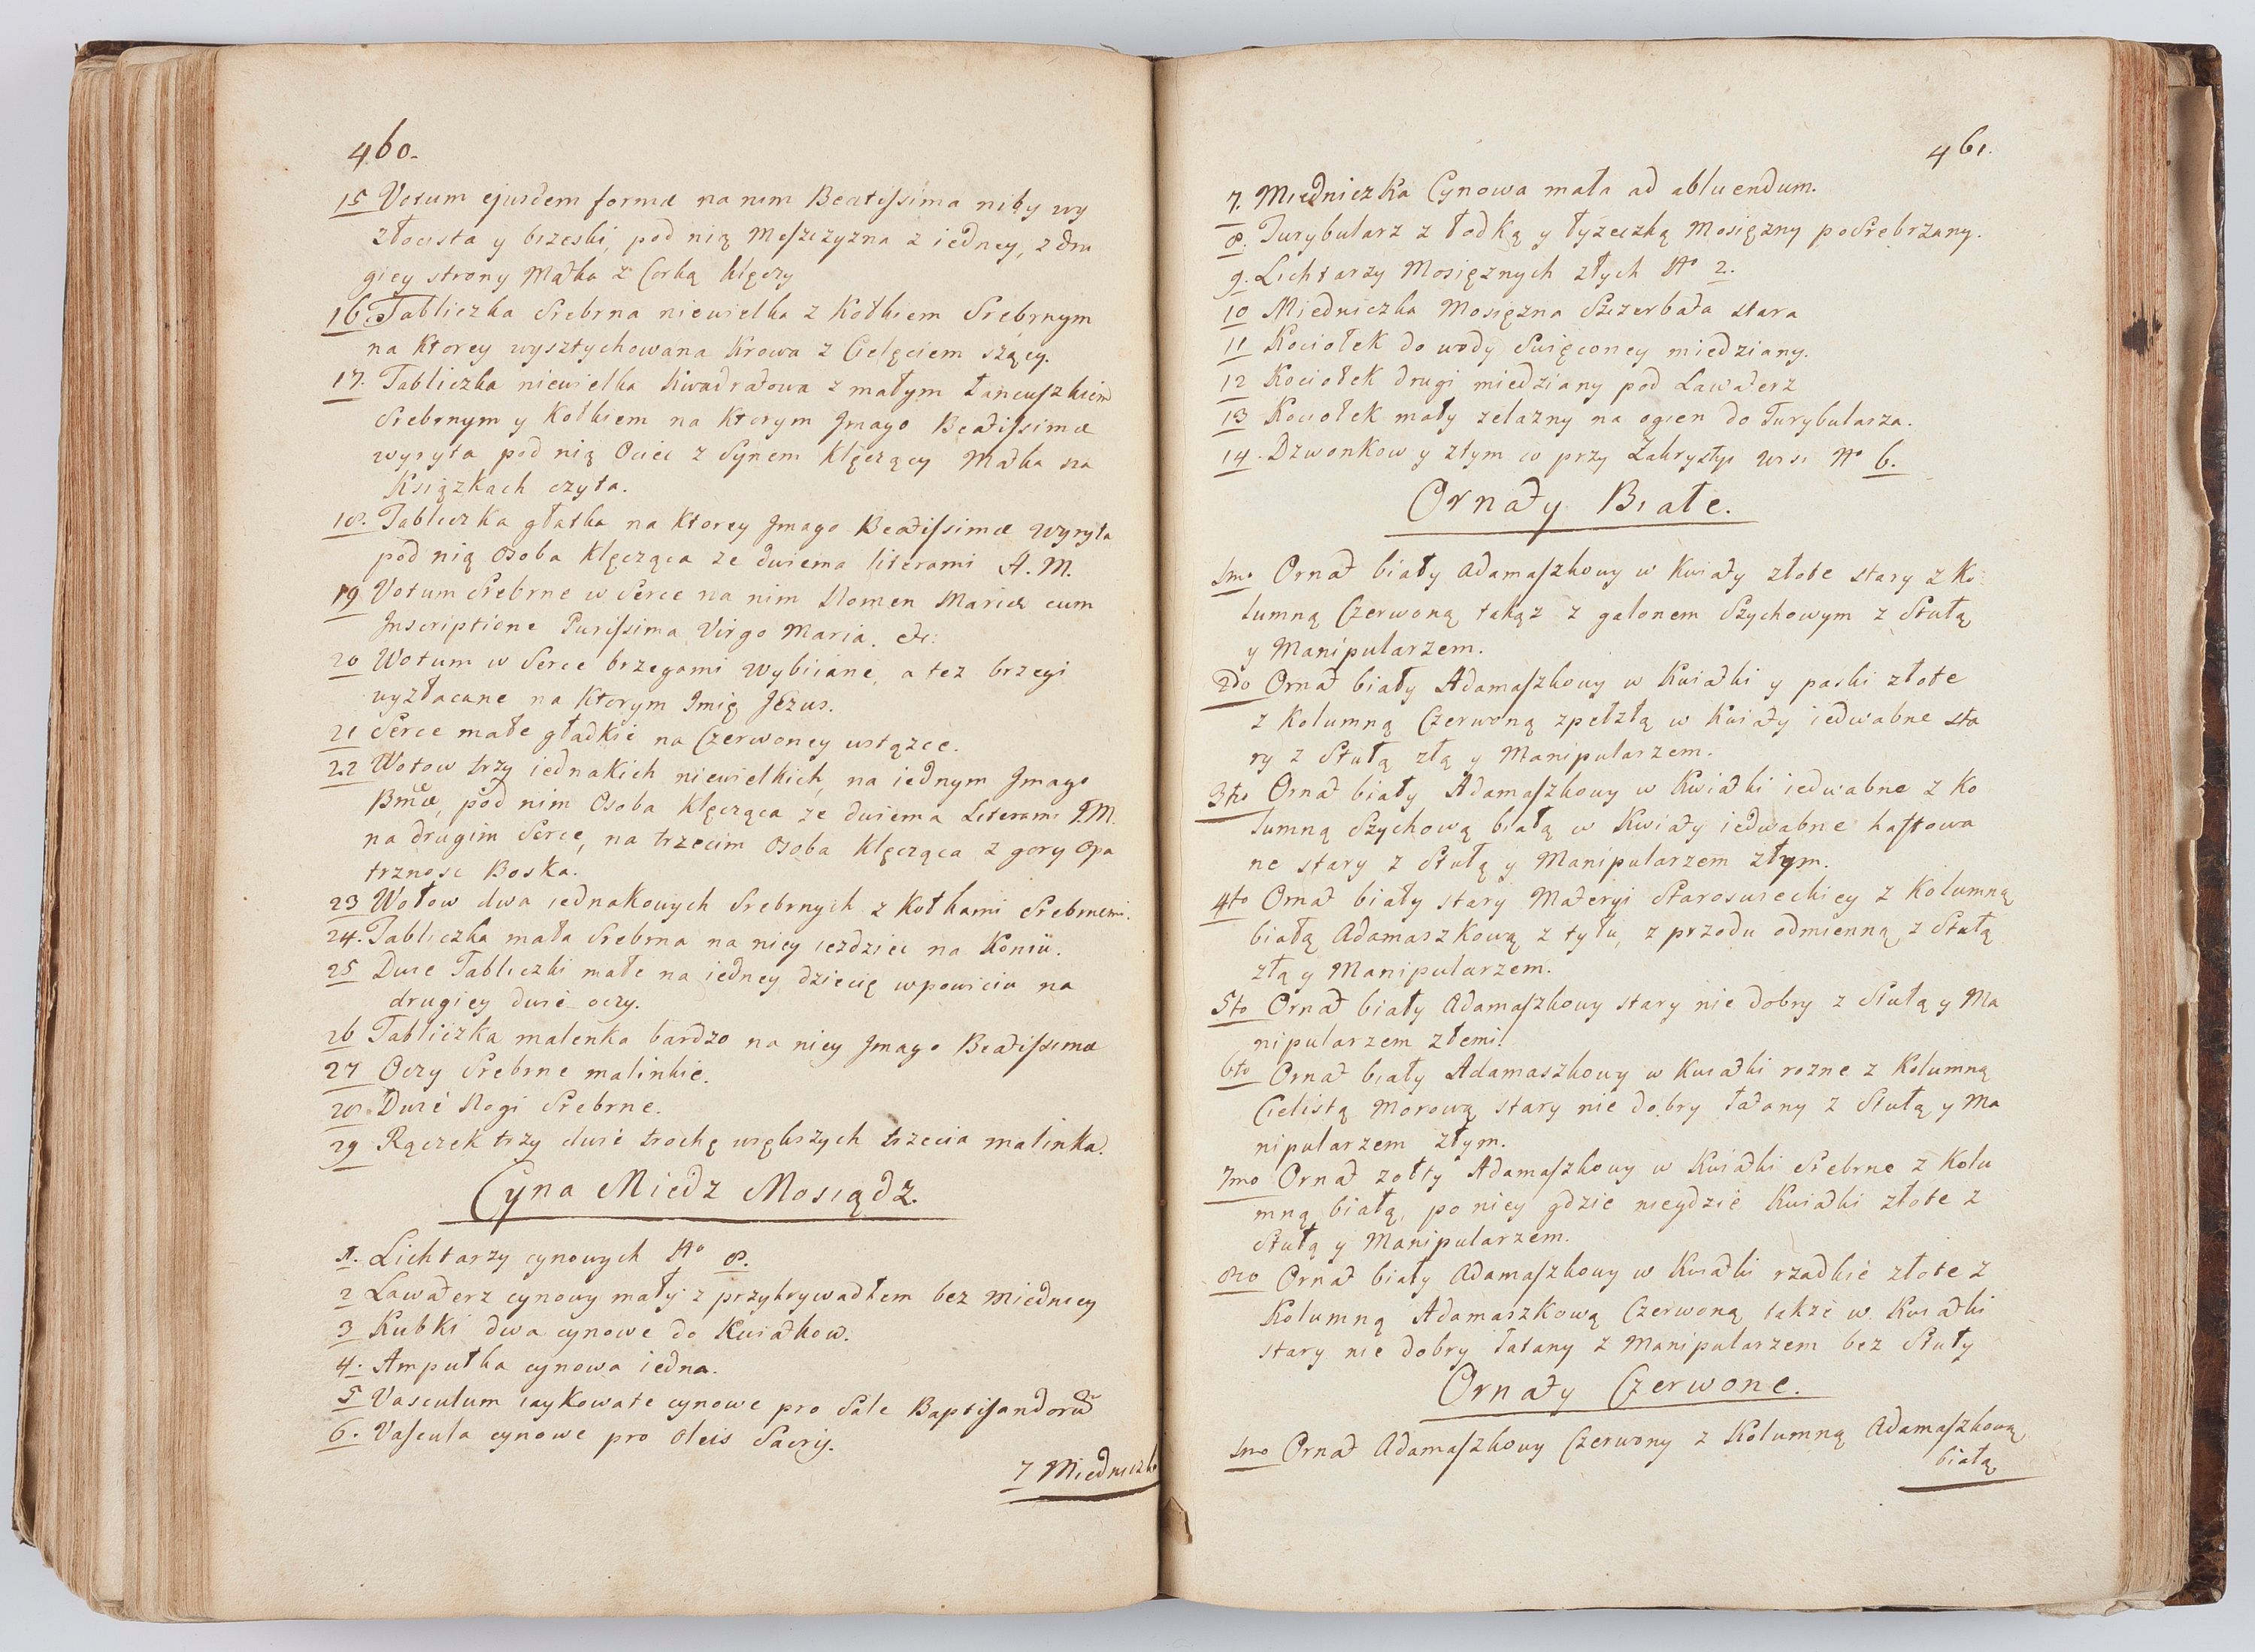 460.
15 Votum ejusdem formæ na nim Beatissima niby wy
złocista y brzeski, pod nią Męszczyzna z iedney, z dru
giey strony Matka z Corką klęczy
16. Tabliczka Srebrna niewielka z Kołkiem Srebrnym
na Ktorey wysztychowana Krowa z Cielęciem szący.
17. Tabliczka niewielka Kwadratowa z małym Łancuszkiem
Srebrnym y Kołkiem na Ktorym Jmago Beatissimæ
wyryta pod nią Ociec z Synem klęczący Matka na
Ksiązkach czyta.
18. Tabliczka głatka na Ktorey Jmago Beatissimæ wyryta
pod nią osoba Klęcząca ze dwiema literami A. M.
19 Votum Srebrne w Serce na nim Nomen Mariæ cum
Jnscriptione Purissima Virgo Maria. etc:
20 Wotum w Serce brzegami wybiiane, a tez brzegi
wyzłacane na Ktorym Jmię Jezus.
21 Serce małe gładkie na Czerwoney wstązce.
22 Wotow trzy iednakich niewielkich, na iednym Jmago
Bmæ, pod nim Osoba Klęcząca ze dwiema Literami F. M.
na drugim Serce, na trzecim osoba Klęcząca z gory Opa
trznosc Boska.
23 Wotow dwa iednakowych Srebrnych z Kołkami Srebrnemi.
24. Tabliczka mała Srebrna na niey iezdziec na Koniu.
25 Dwie Tabliczki małe na iedney dziecię wpowiciu na
drugiey dwie oczy.
26 Tabliczka malenka bardzo na niey Jmago Beatissimæ
27 Oczy Srebrne malinkie.
28. Dwie Nogi Srebrne.
29 Rączek trzy dwie trochę więkrzych trzecia malinka.
Cyna Miedz Mosiądz.
1. Lichtarzy cynowych No 8.
2 Lawaterz cynowy mały z przykrywadłem bez miednicy
3 Kubki dwa cynowe do Kwiatkow.
4. Ampułka cynowa iedna.
5 Vasculum iaykowate cynowe pro Sale Baptisandorũ
6. Vascula cynowe pro oleis Sacris.
7 Miedniczka
461.
7. Miedniczka Cynowa mała ad abluendum.
8. Turybularz z łodką y łyzeczką Mosięzny posrebrzany.
9. Lichtarzy Mosięznych złych No 2.
10 Miedniczka Mosięzna Szczerbata stara
11 Kociołek do wody Swięconey miedziany.
12 Kociołek drugi miedziany pod Lawaterz
13 Kociołek mały zelazny na ogien do Turybularza.
14. Dzwonkow y z tym co przy Zakrystyi wisi No 6.
Ornaty Białe.
1mo Ornat biały Adamaszkowy w Kwiaty złote stary z Ko
lumną Czerwoną takąz z galonem Szychowym z Stułą
y Manipularzem.
2do Ornat biały Adamaszkowy w Kwiatki y paski złote
z Kolumną Czerwoną zpełzłą w Kwiaty iedwabne sta
ry z Stułą złą y Manipularzem.
3tio Ornat biały Adamaszkowy w Kwiatki iedwabne z Ko
lumną Szychową białą w Kwiaty iedwabne haftowa
ne stary z Stułą y Manipularzem złym.
4to Ornat biały stary Materyi Staroswieckiey z Kolumną
białą Adamaszkową z tyłu, z przodu odmienną z Stułą
złą y Manipularzem.
5to Ornat biały Adamaszkowy stary nie dobry z Stułą y Ma
nipularzem złemi.
6to Ornat biały Adamaszkowy w Kwiatki rozne z Kolumną
Cielistą Morową stary nie dobry łatany z Stułą y Ma
nipularzem złym.
7mo Ornat zołty Adamaszkowy w Kwiatki Srebrne z Kolu
mną białą, po niey gdzie niegdzie Kwiatki złote z
Stułą y Manipularzem.
8vo Ornat biały Adamaszkowy w Kwiatki rzadkie złote z
Kolumną Adamaszkową Czerwoną takze w Kwiatki
stary nie dobry łatany z Manipularzem bez Stuły
Ornaty Czerwone.
1mo Ornat Adamaszkowy Czerwony z Kolumną Adamaszkową
białą